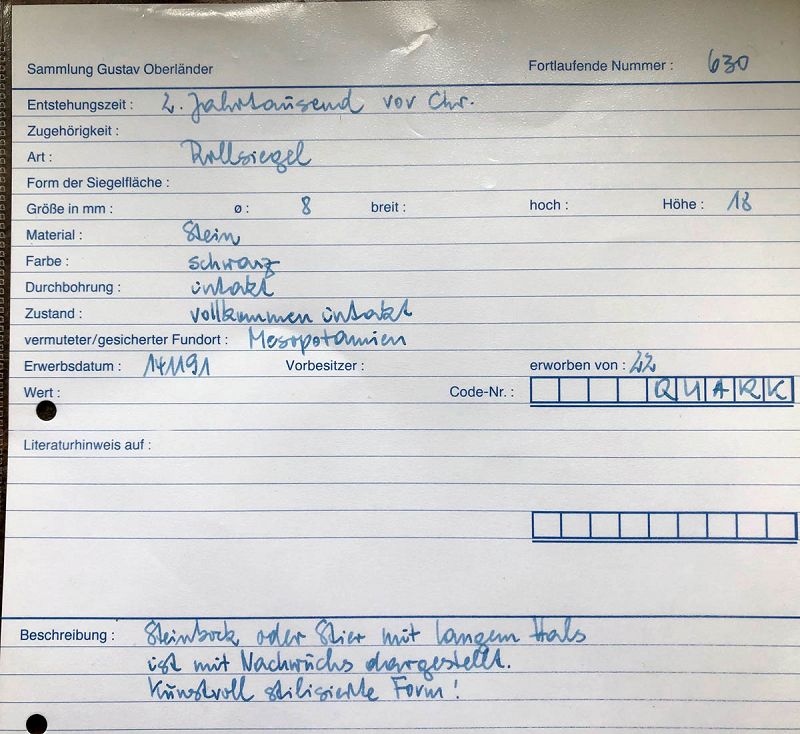 Sammlung Gustav Oberländer Fortlaufende Nummer : 630
Entstehungszeit : 2. Jahrtausend vor Chr.
Zugehörigkeit :
Art : Rollsiegel
Form der Siegelfläche :
Größe in mm : ø : 8 breit : hoch : Höhe : 18
Material : Stein
Farbe : schwarz
Durchbohrung : intakt
Zustand : vollkommen intakt
vermuteter/gesicherter Fundort : Mesopotamien
Erwerbsdatum : 141191 Vorbesitzer : erworben von :
Wert : Code-Nr. : QUARK
Literaturhinweis auf :
Beschreibung : Steinbock oder Stier mit langem Hals
ist mit Nachwuchs dargestellt.
Kunstvoll stilisierte Form !